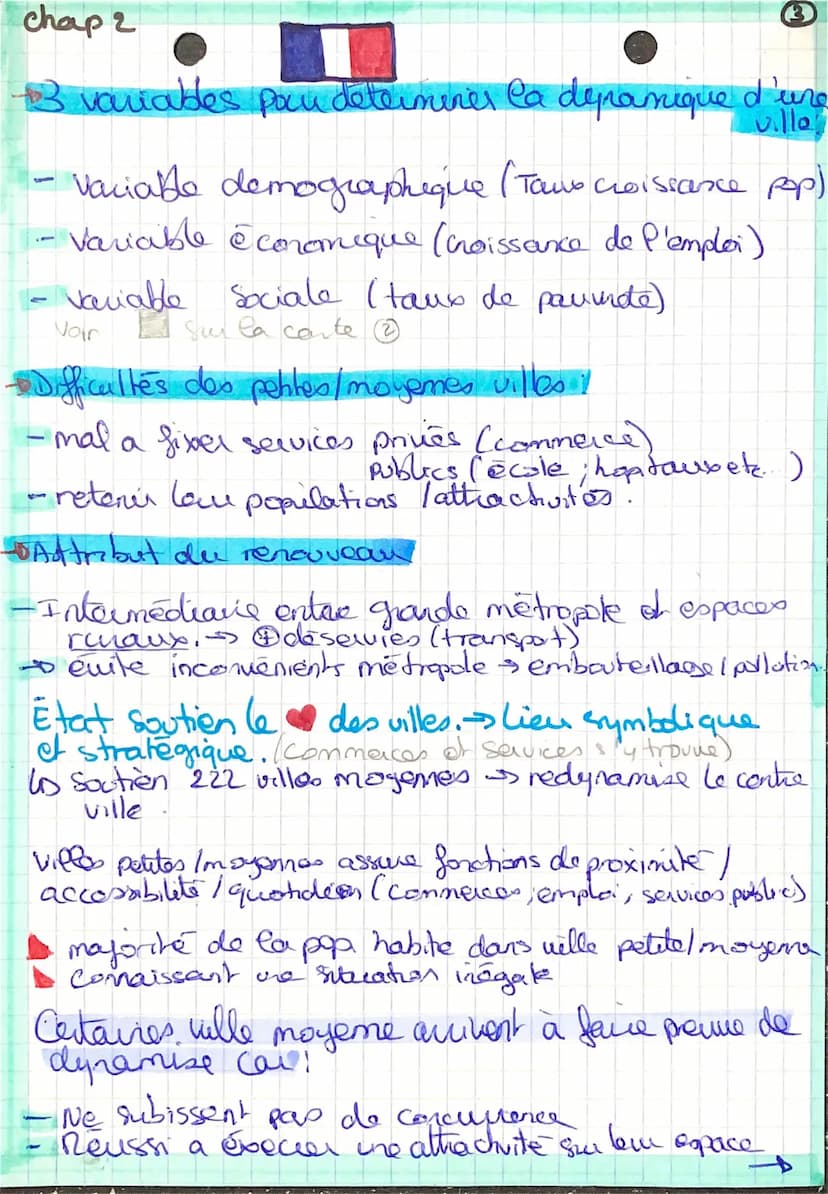 chap 2
3
3 variables pour déterminer la dynamique d'une
ville:
- Variable demographique (Taux croissance pop)
- Variable économique (croissance de l'emploi)
- Variable sociale (taux de pauvreté)
Voir sur la carte 2
Difficultés des petites/moyennes villes:
- mal a fixer services privés (commerce)
publics (école ; hopitaux etc...)
- retenir leur populations / attractivités.
Attribut du renouveau
- Intermédiaire entre grande métropole et espaces
ruraux. → + déservies (transport)
→ évite inconvénients métropole → embouteillage / pollution
État soutien le ♥ des villes. → Lieu symbolique
et stratégique. (Commerces et services s'y trouve)
↳ Soutien 222 villes moyennes → redynamise le centre
ville.
Villes petites/moyennes assure fonctions de proximité /
accessibilité / quotidien (commerces, emploi, services publics)
majorité de la pop habite dans ville petite/moyenne
Connaissant une situation inégale
Certaines ville moyenne arrivent à faire preuve de
dynamise car:
- Ne subissent pas de concurrence
- Réussi a exercer une attractivité sur leur espace
→